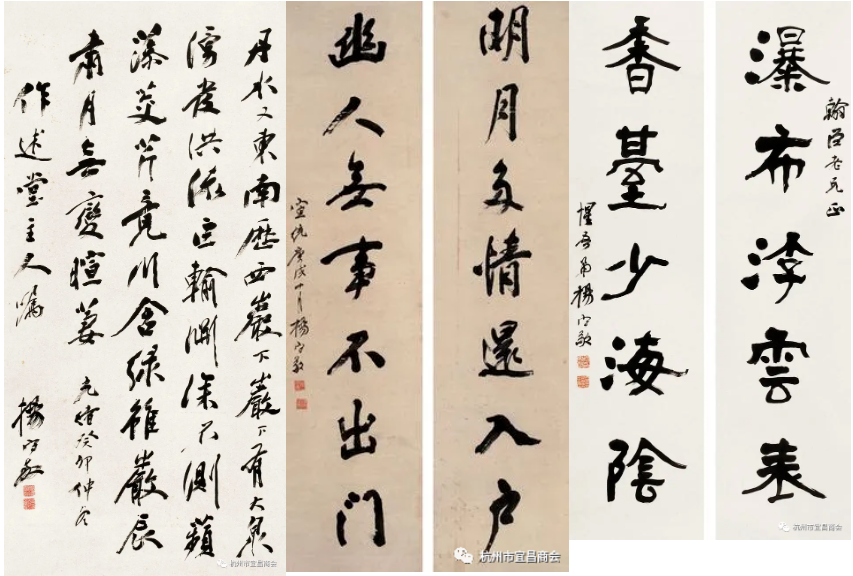 翰臣老兄正
瀑布浮雲表
香臺少海陰
惺吾弟楊守敬
明月多情還入户
幽人無事不出门
宣統庚戌十月楊守敬
丹水又東南歷西巖下巖下有大泉
湧發洪流巨輸淵深不測蘋
藻茭芹竟川含綠雖嚴辰
肅月無變暄萋 光緒癸卯仲冬
作述堂主人囑 楊守敬
杭州市宜昌商会
杭州市宜昌商会
杭州市宜昌商会